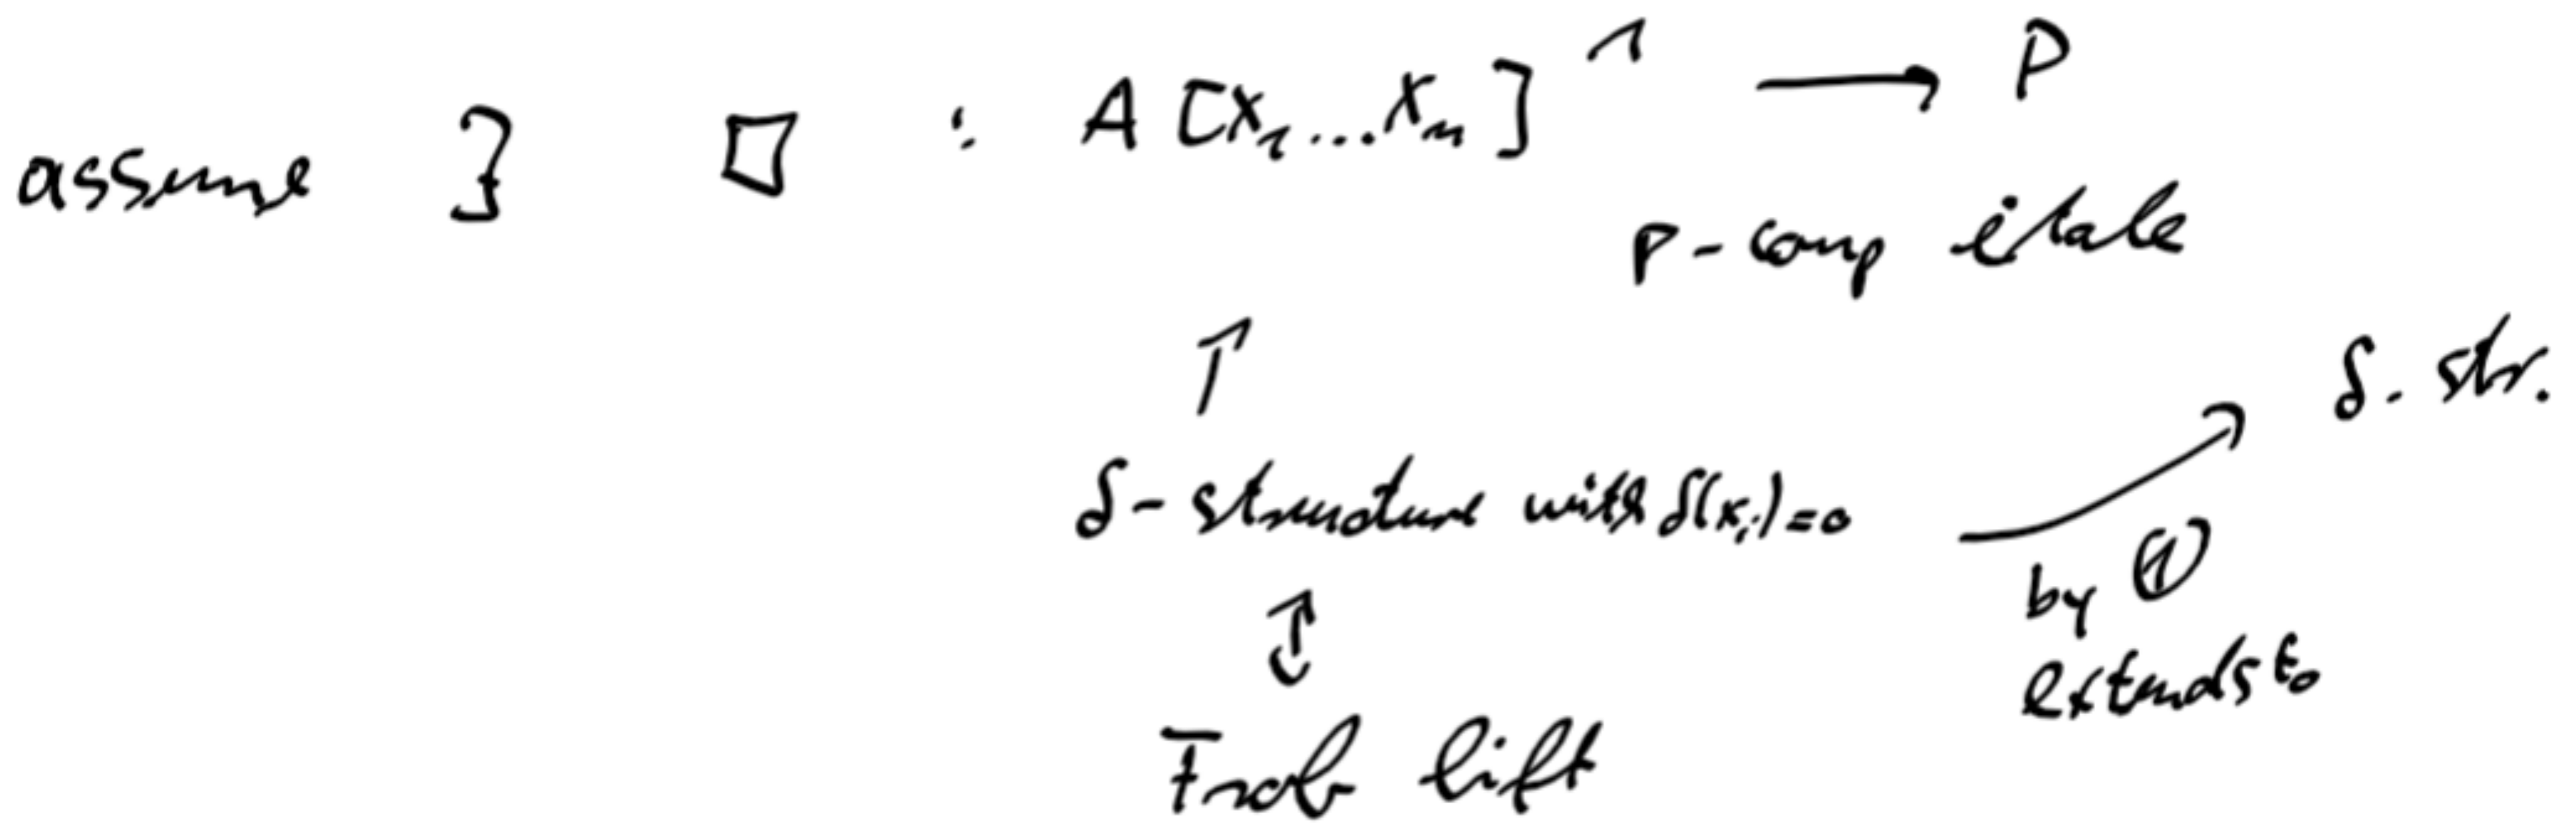 assume ∃ □ : A[x₁...xₙ]^ → P
p-comp etale
↑
δ-structure with δ(xᵢ)=0 → δ-str.
by ①
extends to
↕
Frob lift